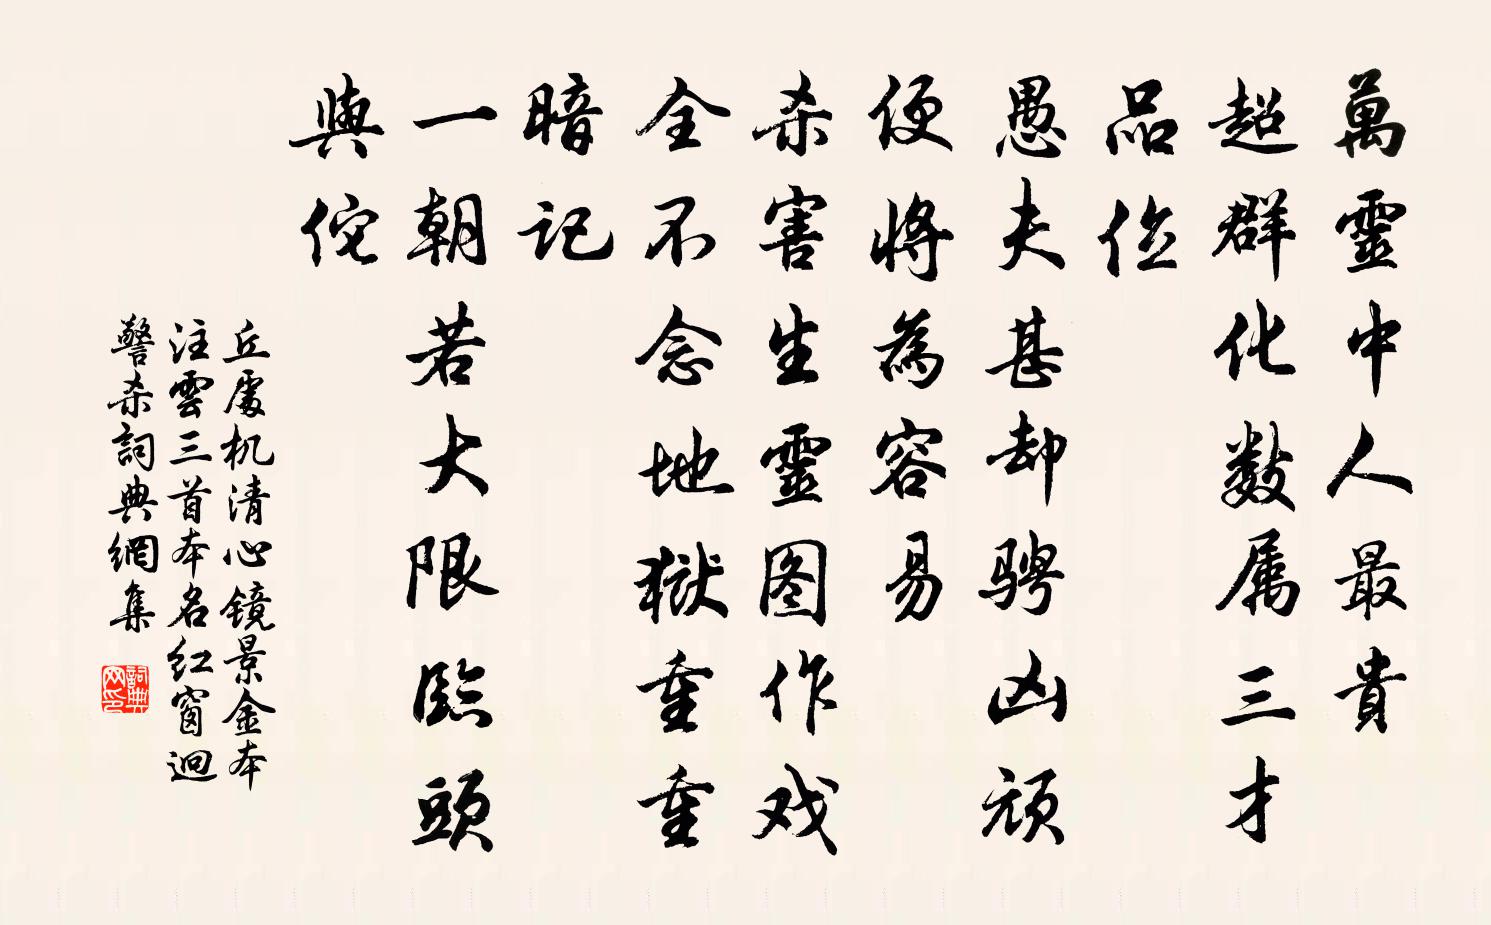 萬靈中人最貴
超群化数属三才
品位
愚夫甚却骋凶顽
便將為容易
杀害生靈图作戏
全不念地獄重重
暗记
一朝若大限臨頭
與侘
丘處机清心镜景金本
注雲三首本名红窗迥
警杀詞典網集
詞典网印